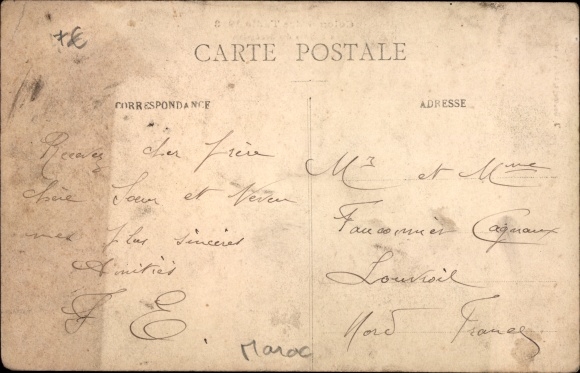 7€
CARTE POSTALE
CORRESPONDANCE
Recevez cher frère
chère Sœur et Neveu
mes plus sincères
Amitiés
F E
ADRESSE
Mr et Mme
Fauconnier Cagnaux
Louvroil
Nord France
Maroc